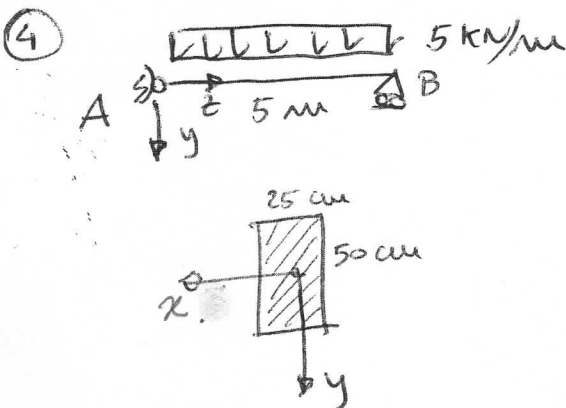 4
5 KN/m
A
z
5 m
B
y
25 cm
50 cm
x
y